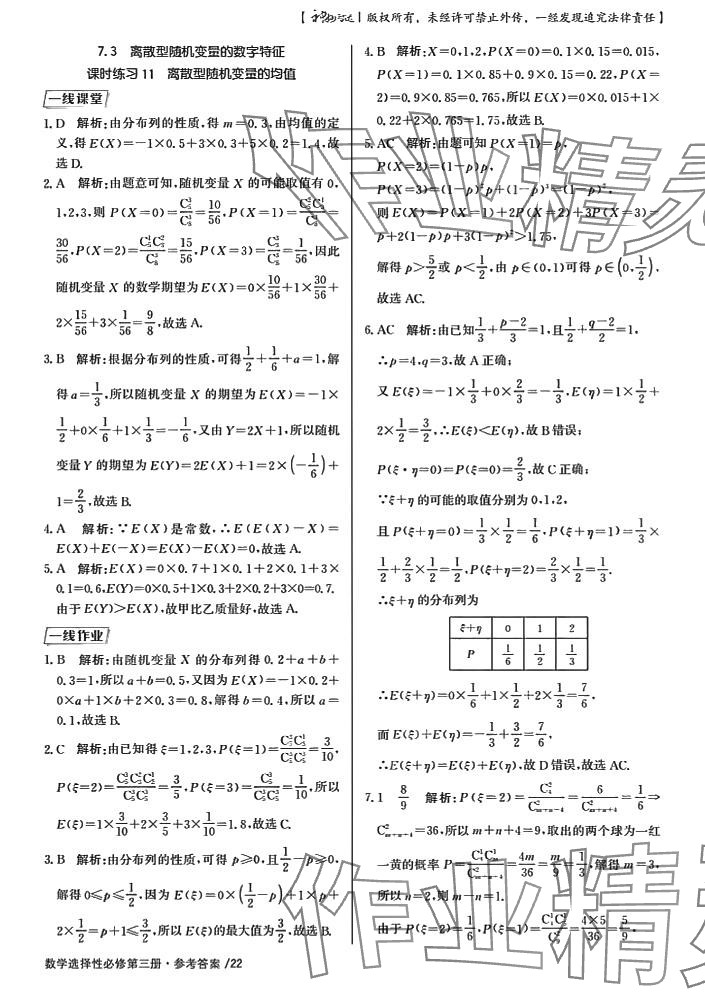 【 | 版权所有，未经许可禁止外传，一经发现追究法律责任】
7.3 离散型随机变量的数字特征
课时练习11 离散型随机变量的均值
一线课堂
1. D 解析:由分布列的性质,得 m=0.3,由均值的定
义,得 E(X)=-1×0.5+3×0.3+5×0.2=1.4,故
选 D.
2. A 解析:由题意可知,随机变量 X 的可能取值有 0,
1,2,3,则 P(X=0)=C³₅/C³₈=10/56,P(X=1)=C²₅C¹₃/C³₈=
30/56,P(X=2)=C¹₅C²₃/C³₈=15/56,P(X=3)=C³₃/C³₈=1/56,因此
随机变量 X 的数学期望为 E(X)=0×10/56+1×30/56+
2×15/56+3×1/56=9/8,故选 A.
3. B 解析:根据分布列的性质,可得1/2+1/6+a=1,解
得 a=1/3,所以随机变量 X 的期望为 E(X)=-1×
1/2+0×1/6+1×1/3=-1/6,又由 Y=2X+1,所以随机
变量 Y 的期望为 E(Y)=2E(X)+1=2×(-1/6)+
1=2/3,故选 B.
4. A 解析:∵E(X)是常数,∴E(E(X)-X)=
E(X)+E(-X)=E(X)-E(X)=0,故选 A.
5. A 解析:E(X)=0×0.7+1×0.1+2×0.1+3×
0.1=0.6,E(Y)=0×0.5+1×0.3+2×0.2+3×0=0.7.
由于 E(Y)>E(X),故甲比乙质量好,故选 A.
一线作业
1. B 解析:由随机变量 X 的分布列得 0.2+a+b+
0.3=1,所以 a+b=0.5,又因为 E(X)=-1×0.2+
0×a+1×b+2×0.3=0.8,解得 b=0.4,所以 a=
0.1,故选 B.
2. C 解析:由已知得 ξ=1,2,3,P(ξ=1)==3/10,
P(ξ=2)==3/5,P(ξ=3)==1/10,所以
E(ξ)=1×3/10+2×3/5+3×1/10=1.8,故选 C.
3. B 解析:由分布列的性质,可得 p≥0,且1/2-p≥0,
解得 0≤p≤1/2,因为 E(ξ)=0×(1/2-p)+1×p+
2×1/2=p+1≤3/2,所以 E(ξ)的最大值为3/2,故选 B.
数学选择性必修第三册·参考答案 /22
4. B 解析:X=0,1,2,P(X=0)=0.1×0.15=0.015,
P(X=1)=0.1×0.85+0.9×0.15=0.22,P(X=
2)=0.9×0.85=0.765,所以 E(X)=0×0.015+1×
0.22+2×0.765=1.75,故选 B.
5. AC 解析:由题可知 P(X=1)=p,
P(X=2)=(1-p)p,
P(X=3)=(1-p)²p+(1-p)³=(1-p)²,
则 E(X)=P(X=1)+2P(X=2)+3P(X=3)=
p+2(1-p)p+3(1-p)²>1.75,
解得 p>5/2或 p<1/2,由 p∈(0,1)可得 p∈(0,1/2),
故选 AC.
6. AC 解析:由已知1/3+(p-2)/3=1,且1/2+(q-2)/2=1,
∴p=4,q=3,故 A 正确;
又 E(ξ)=-1×1/3+0×2/3=-1/3,E(η)=1×1/2+
2×1/2=3/2,∴E(ξ)<E(η),故 B 错误;
P(ξ·η=0)=P(ξ=0)=2/3,故 C 正确;
∵ξ+η 的可能的取值分别为 0,1,2,
且 P(ξ+η=0)=1/3×1/2=1/6,P(ξ+η=1)=1/3×
1/2+2/3×1/2=1/2,P(ξ+η=2)=2/3×1/2=1/3.
∴ξ+η 的分布列为
ξ+η 0 1 2
P 1/6 1/2 1/3
∴E(ξ+η)=0×1/6+1×1/2+2×1/3=7/6,
而 E(ξ)+E(η)=-1/3+3/2=7/6,
∴E(ξ+η)=E(ξ)+E(η),故 D 错误,故选 AC.
7. 1 8/9 解析:P(ξ=2)=C²₄/C²ₘ₊ₙ₊₄=6/C²ₘ₊ₙ₊₄=1/6⇒
C²ₘ₊ₙ₊₄=36,所以 m+n+4=9,取出的两个球为一红
一黄的概率 P=C¹₄C¹ₘ/C²ₘ₊ₙ₊₄=4m/36=m/9=1/3,解得 m=3,
所以 n=2,则 m-n=1.
由于 P(ξ=2)=1/6,P(ξ=1)=C¹₄C¹₅/C²₉=4×5/36=5/9,
作业精灵
作业精灵